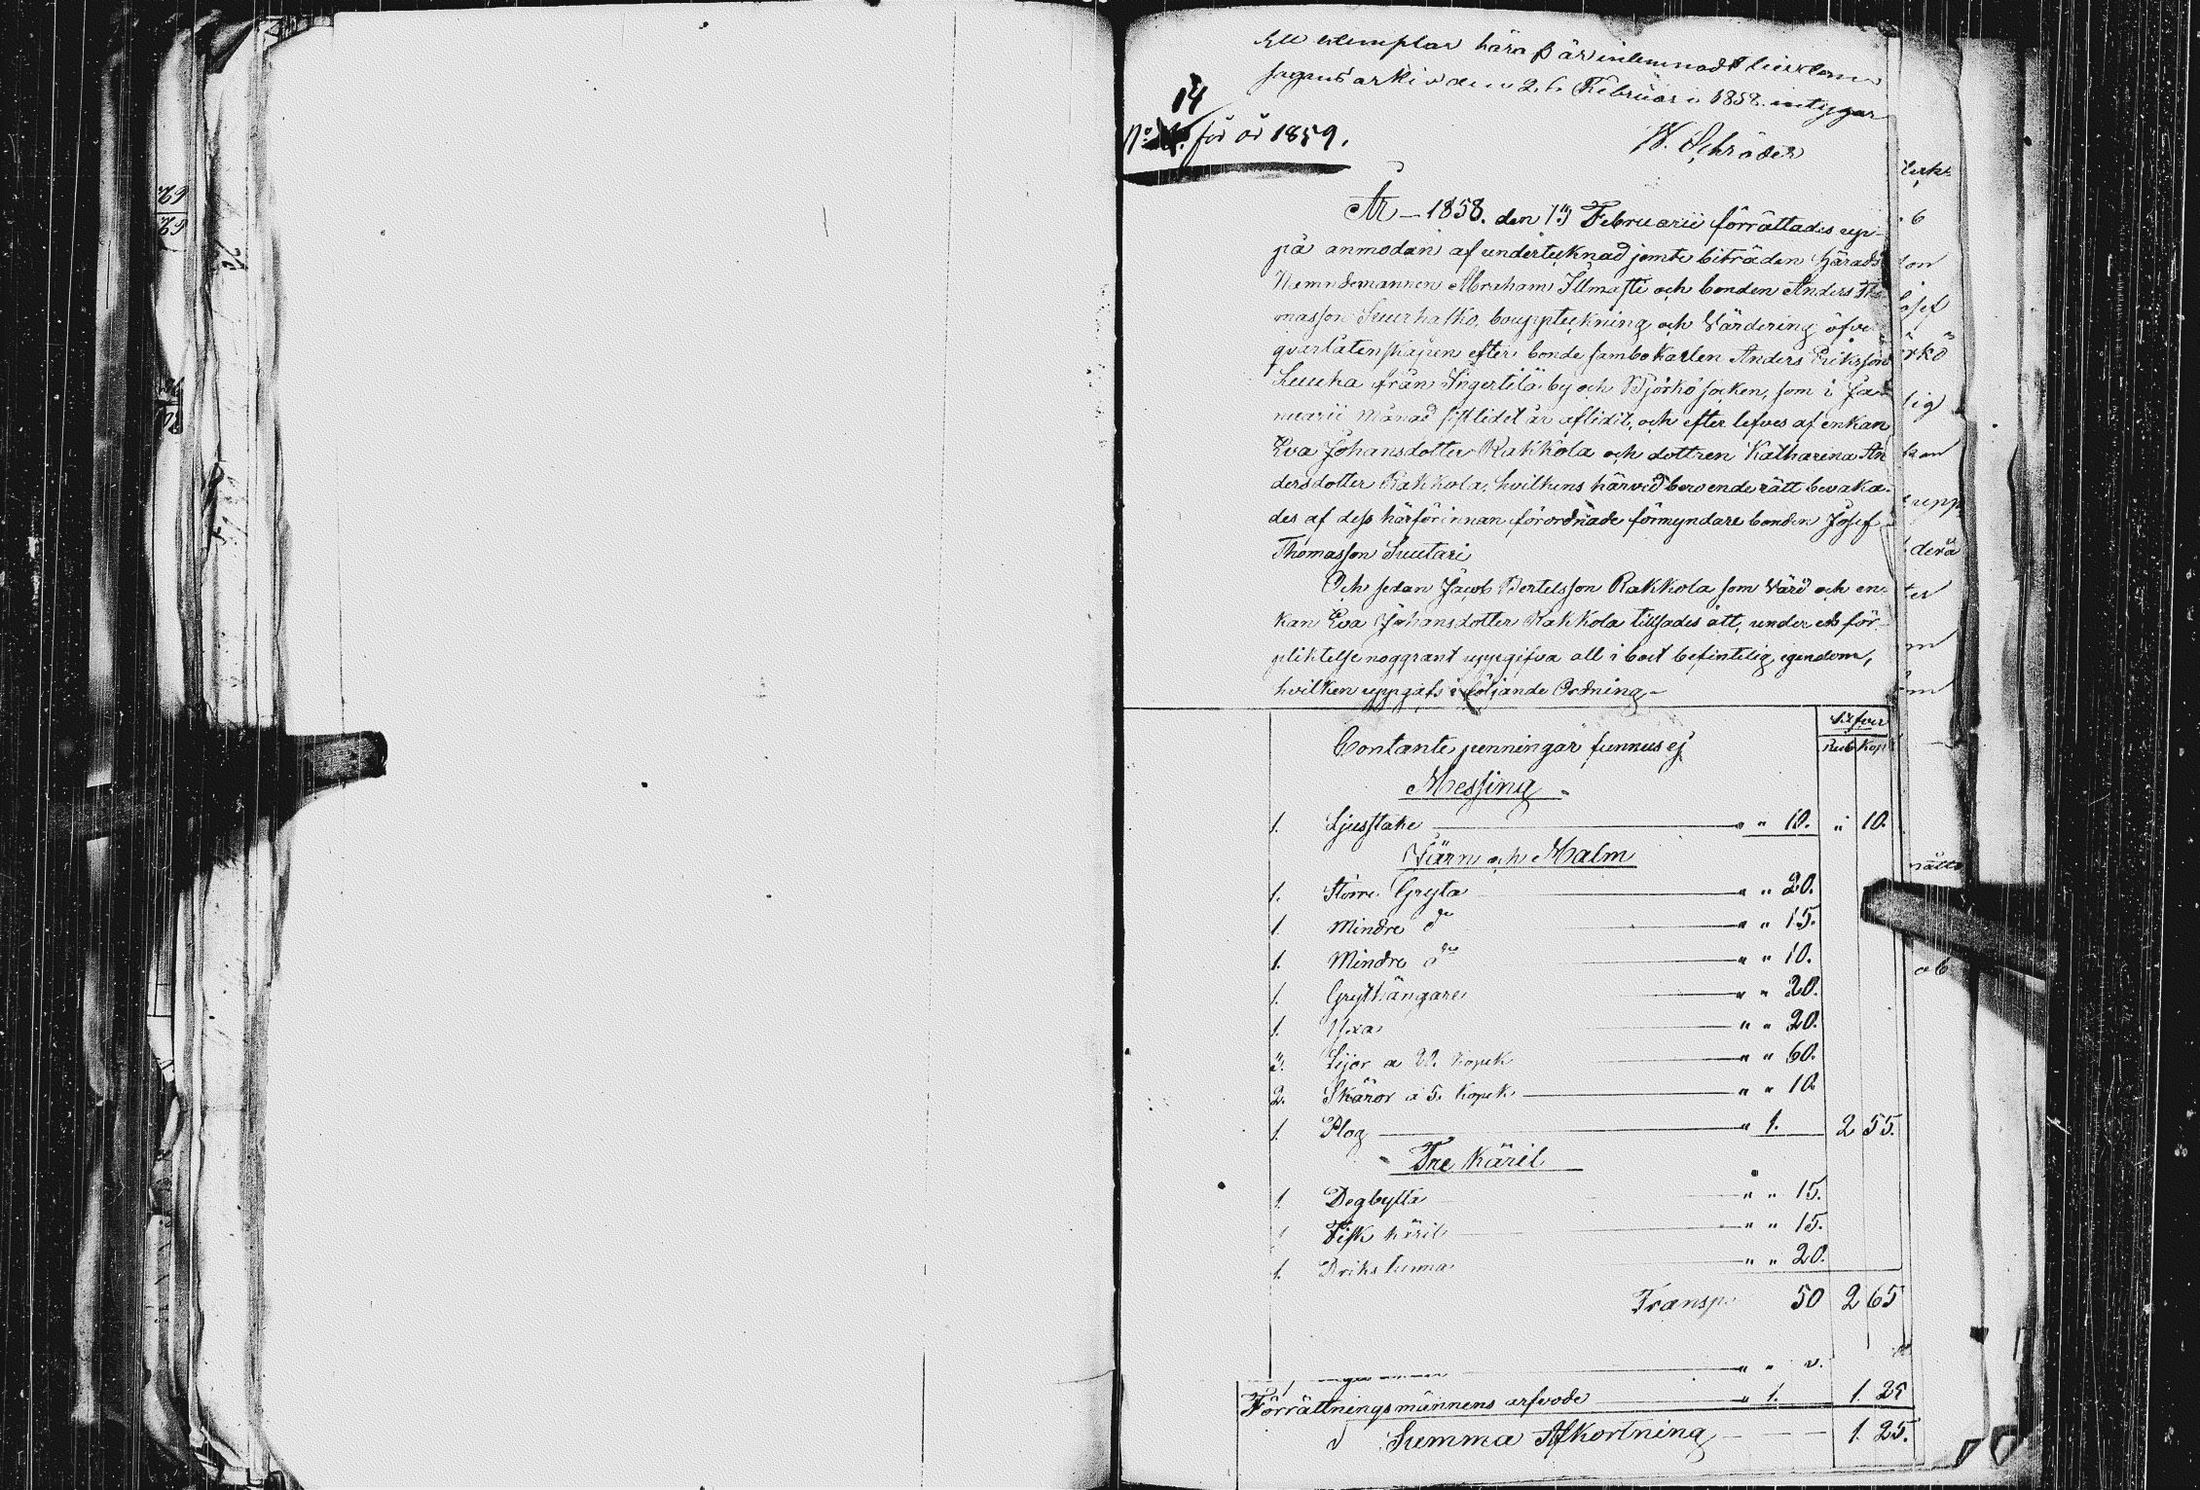 exemplar härå är inlemnadt
arkiv den 26 Februari 1858. intygar
W. Schråder
14
No för år 1859.
År - 1858. den 13 Februarii förrättades up-
på anmodan af undertecknad jemte biträden Härads
Nämndemannen Abraham Ilmasti och bonden Anders Tho-
masson Suurhalko, bouppteckning och Värdering öfver
qvarlåtenskapen efter bonde sambokarlen Anders Eriksson
Luuka från Ingertilä by och Björkö socken, som i Ja-
nuarii månad sistlidet år aflidit, och efter lefves af enkan
Eva Johansdotter Rakkola och dottren Katharina An
dersdotter Rakkola, hvilkens härvid beroende rätt bevaka-
des af dess härförinnan förordnade förmyndare bonden Josef
Thomasson Suutari
Och sedan Jacob Bertelsson Rakkola som Värd och en-
kan Eva Johansdotter Rakkola tillsades att, under eds för-
pliktelse noggrant uppgifva all i boet befintelig egendom,
hvilken uppgafs i följande Ordning -
Silfver
Contante penningar funnus ej Rub Kop
Messing
1. Ljusstake " " 10. " 10.
Järn och Malm
1. Större Gryta " " 20.
1 Mindre do " " 15.
1. Mindre do " " 10.
1. Grythängare " " 20.
1. Yxa " " 20.
3. Lijor a 20. kopek " " 60.
2. Skäror a 5. kopek " " 10
1. Plog " 1. 2 55.
Träkäril
1. Degbytta " " 15.
1 Fisk käril " " 15.
1. Drikstunna " " 20.
Transp. 50 2 65
Förrättningsmännens arfvode " 1. 1. 25
Summa Afkortning 1 25.
6
son
Josef
irkö
lig
kan
upp
derä
ter
m
rätte